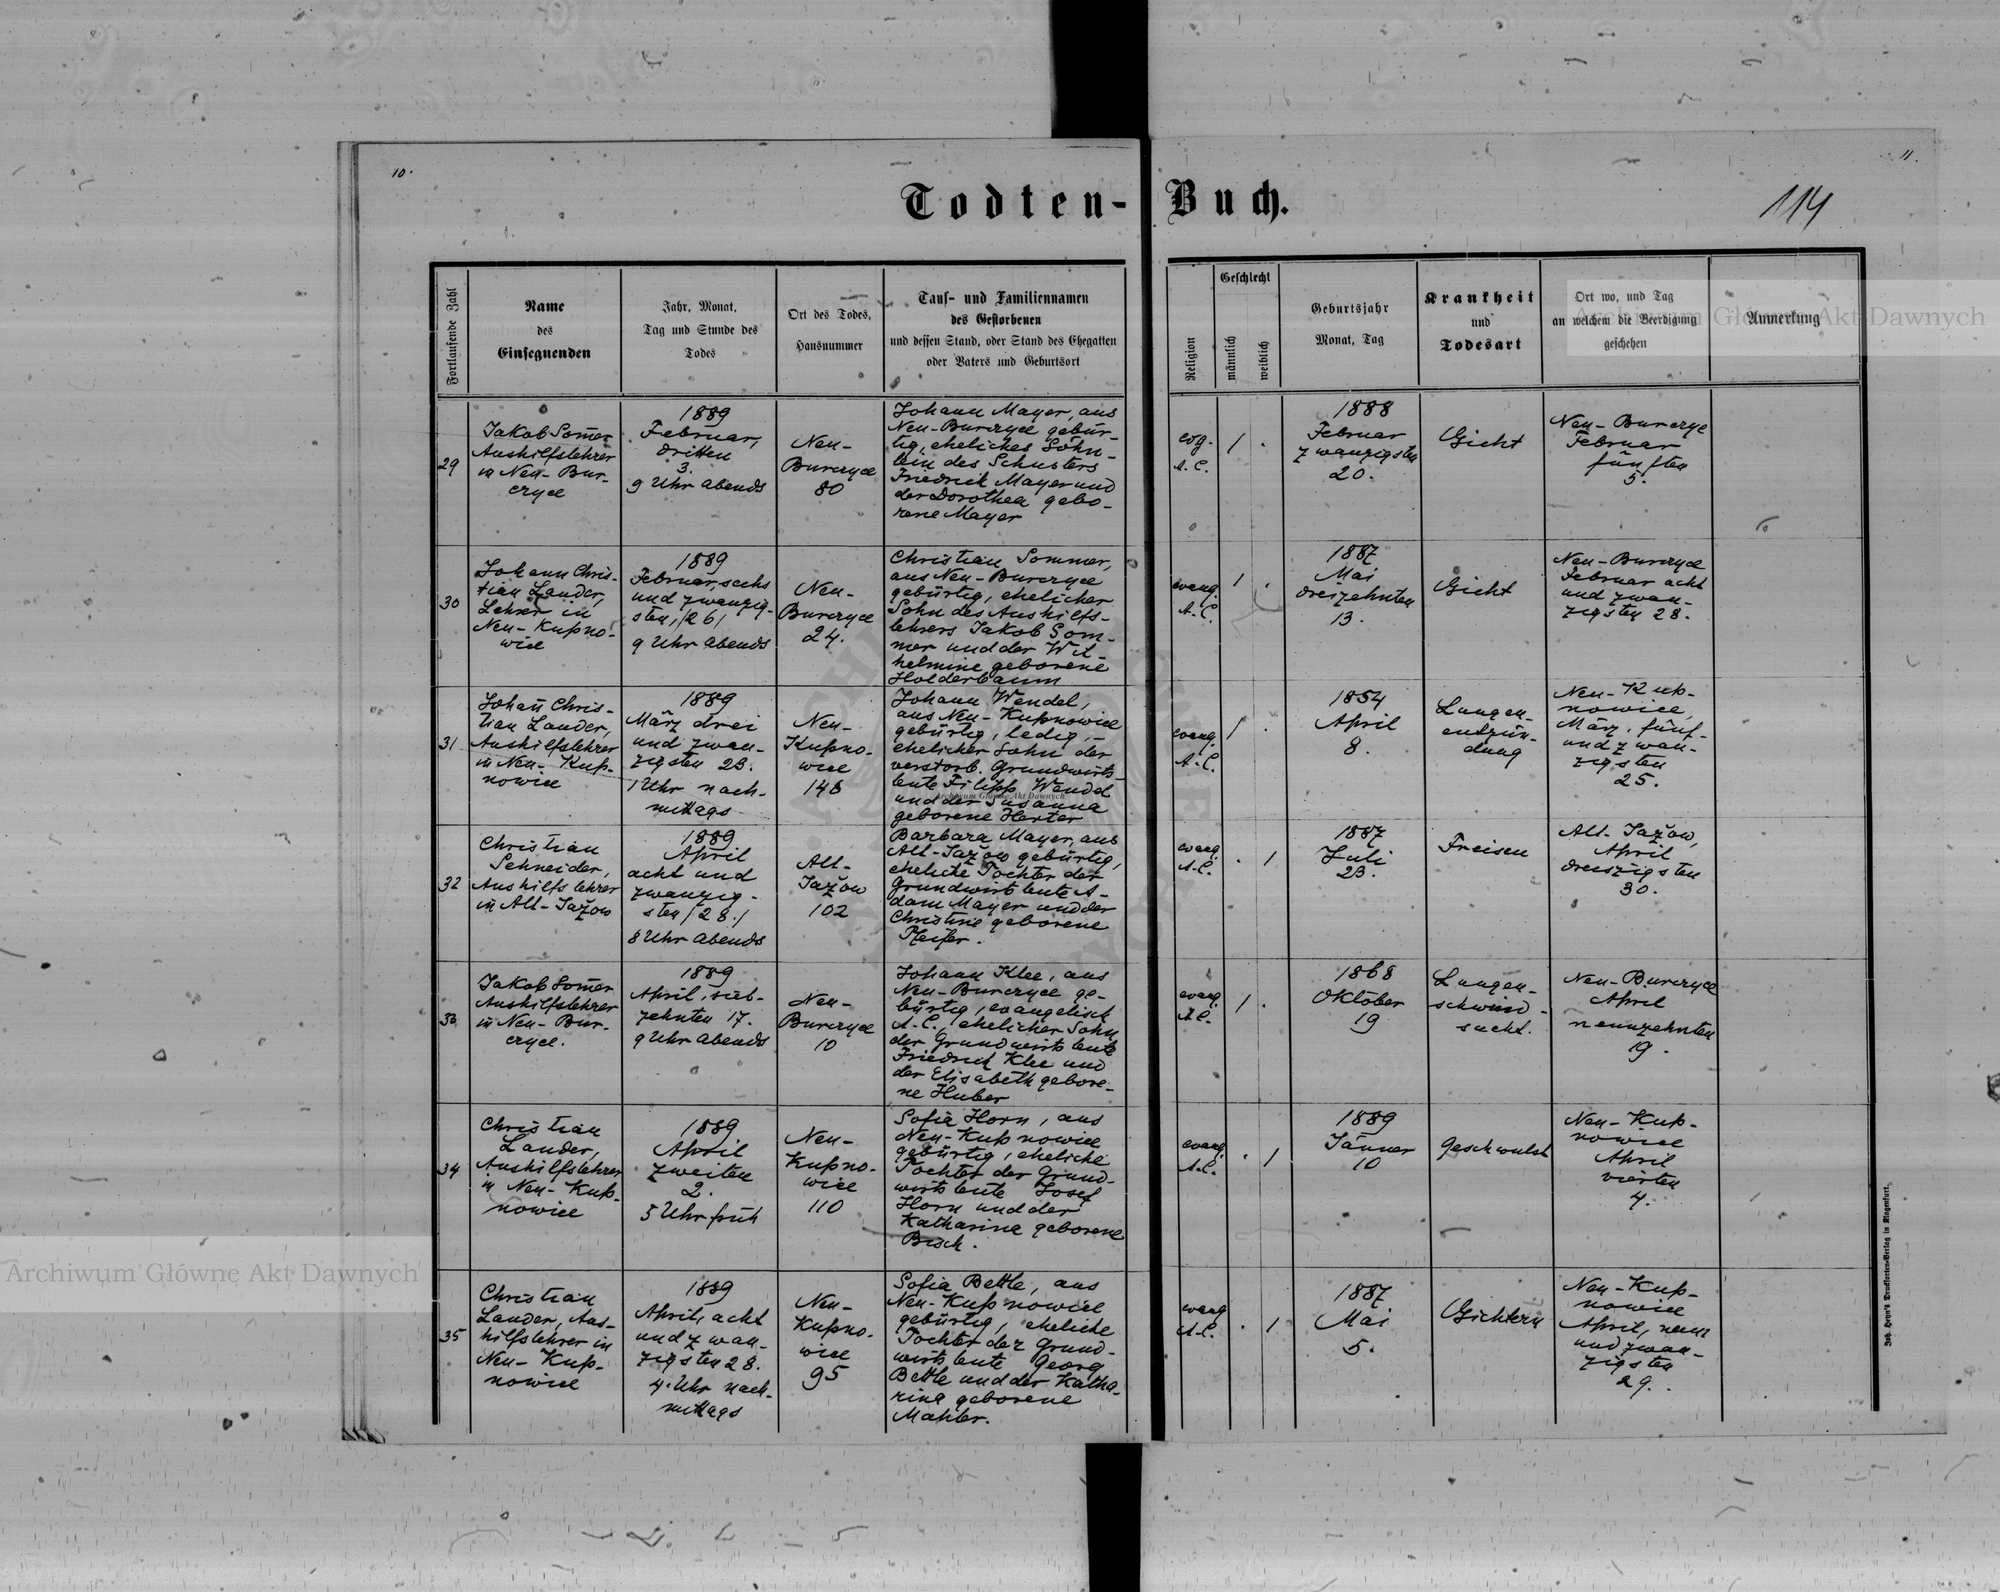 10.
11.
114
Todten-Buch.
Fortlaufende Zahl
Name
des
Einsegnenden
Jahr, Monat,
Tag und Stunde des
Todes
Ort des Todes,
Hausnummer
Tauf- und Familiennamen
des Gestorbenen
und dessen Stand, oder Stand des Ehegatten
oder Vaters und Geburtsort
Religion
Geschlecht
männlich
weiblich
Geburtsjahr
Monat, Tag
Krankheit
und
Todesart
Ort wo, und Tag
an welchem die Beerdigung
geschehen
Anmerkung
29
Jakob Som̄er
Aushilfslehrer
in Neu-Bur-
czyce
1889
Februar,
dritten
3.
9 Uhr abends
Neu-
Burczyce
80
Johann Mayer, aus
Neu-Burczyce gebür-
tig, eheliches Söhn-
lein des Schusters
Friedrich Mayer und
der Dorothea gebo-
rene Mayer
evg.
A.C.
1 .
1888
Februar
zwanzigsten
20.
Gicht
Neu-Burczyce
Februar
fünften
5.
30
Johann Chris-
tian Lander,
Lehrer in
Neu-Kupno-
wice
1889
Februar, sechs
und zwanzig-
sten, /26/
9 Uhr abends
Neu-
Burczyce
24.
Christian Sommer,
aus Neu-Burczyce
gebürtig, ehelicher
Sohn des Aushilfs-
lehrers Jakob Som-
mer und der Wil-
helmine geborene
Holderbaum
evang.
A.C.
1 .
1887
Mai
dreizehnten
13.
Gicht
Neu-Burczyce
Februar acht
und zwan-
zigsten 28.
31
Johan̄ Chris-
tian Lander,
Aushilfslehrer
in Neu-Kup-
nowice
1889
März drei
und zwan-
zigsten 23.
1 Uhr nach-
mittags
Neu-
Kupno-
wice
148
Johann Wendel,
aus Neu-Kupnowice
gebürtig, ledig,-
ehelicher Sohn der
verstorb. Grundwirts-
leute Filipp Wendel
und der Susanna
geborene Harter
evang.
A.C.
1 .
1854
April
8.
Lungen-
entzün-
dung
Neu-Kup-
nowice,
März, fünf-
und zwan-
zigsten
25.
32
Christian
Schneider,
Aushilfslehrer
in Alt-Jažow
1889
April
acht und
zwanzig-
sten /28./
8 Uhr abends
Alt-
Jažow
102
Barbara Mayer, aus
Alt-Jažow gebürtig,
eheliche Tochter der
Grundwirtsleute A-
dam Mayer und der
Christine geborene
Pfeifer.
evang.
A.C.
. 1
1887
Juli
23.
Freisen
Alt-Jažow,
April
dreiszigsten
30.
33
Jakob Som̄er
Aushilfslehrer
in Neu-Bur-
czyce.
1889
April, sieb-
zehnten 17.
9 Uhr abends
Neu-
Burczyce
10
Johann Klee, aus
Neu-Burczyce ge-
bürtig, evangelisch
A.C., ehelicher Sohn
der Grundwirtsleute
Friedrich Klee und
der Elisabeth gebore-
ne Huber
evang.
A.C.
1 .
1868
Oktober
19
Lungen-
schwind-
sucht.
Neu-Burczyce
April
neunzehnten
19.
34
Christian
Lander,
Aushilfslehrer
in Neu-Kup-
nowice
1889
April
zweiten
2.
5 Uhr früh
Neu-
Kupno-
wice
110
Sofia Horn, aus
Neu-Kupnowice
gebürtig, eheliche
Tochter der Grund-
wirtsleute Josef
Horn und der
Katharina geborene
Bisch.
evang.
A.C.
. 1
1889
Jänner
10
Geschwulst
Neu-Kup-
nowice
April
vierten
4.
35
Christian
Lander, Aus-
hilfslehrer in
Neu-Kup-
nowice
1889
April, acht
und zwan-
zigsten 28.
4 Uhr nach-
mittags
Neu-
Kupno-
wice
95
Sofia Bettle, aus
Neu-Kupnowice
gebürtig, eheliche
Tochter der Grund-
wirtsleute Georg
Bettle und der Katha-
rina geborene
Mahler.
evang.
A.C.
. 1
1887
Mai
5.
Gichtern
Neu-Kup-
nowice
April, neun
und zwan-
zigsten
29.
Joh. Heyn's Drucksorten-Verlag in Klagenfurt.
Archiwum Główne Akt Dawnych
Archiwum Główne Akt Dawnych
Archiwum Główne Akt Dawnych